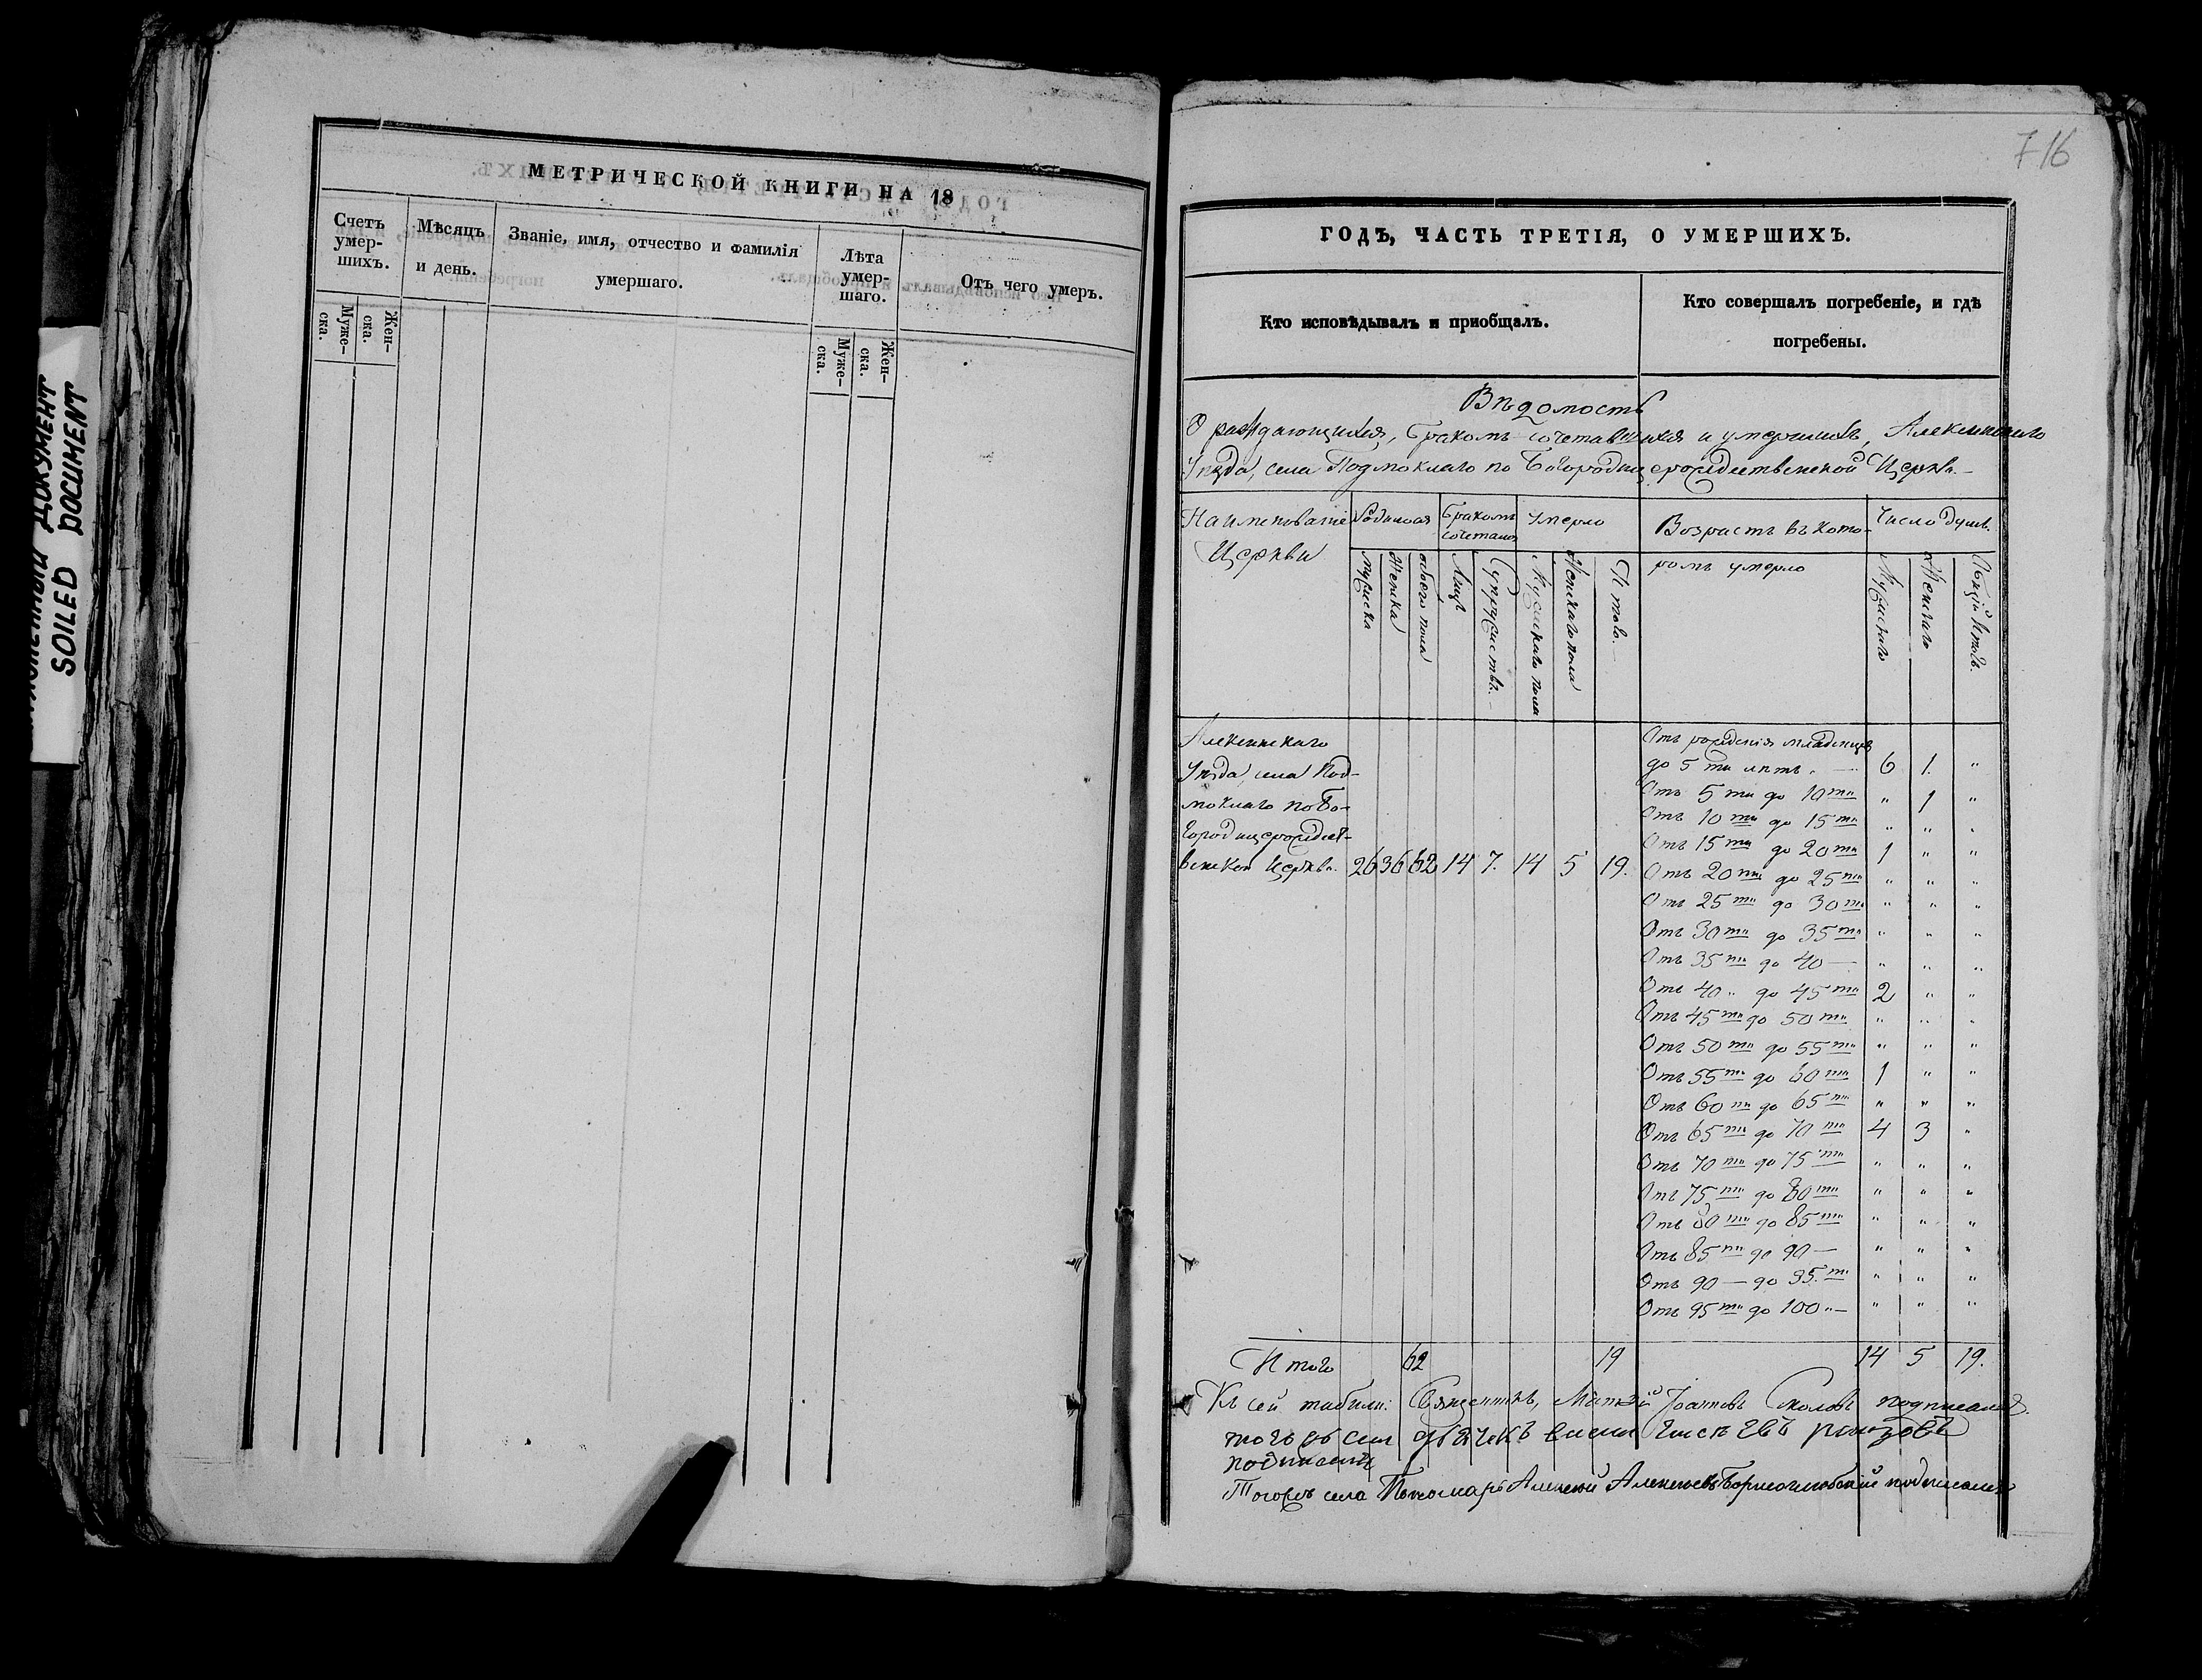 ДОКУМЕНТ
SOILED DOCUMENT
МЕТРИЧЕСКОЙ КНИГИ НА 18
Счетъ умер-шихъ.
Муже-ска.
Жен-ска.
Мѣсяцъ и день.
Званіе, имя, отчество и фамилія
умершаго.
Лѣта умер-шаго.
Муже-ска.
Жен-ска.
Отъ чего умеръ.
716
ГОДЪ, ЧАСТЬ ТРЕТІЯ, О УМЕРШИХЪ.
Кто исповѣдывалъ и приобщалъ.
Кто совершалъ погребеніе, и гдѣ
погребены.
Вѣдомость
О раждающихся, бракомъ сочетавшихся и умершихъ, Алексинскаго
Уѣзда, села Подмоклаго по Богородицерождественской Церкви
Наименованіе
Церкви
Родилося
мужеска
женска
обоего пола
Бракомъ
сочетано
Лицъ
Супружествъ
Умерло
Мужскаго пола
Женскаго пола
Итого
Возрастъ въ кото-
ромъ умерло
Число душъ
Мужскаго
Женскаго
Итогъ.
Алексинскаго
Уѣзда, села Под-
моклаго по Бо-
городицерождест-
венской Церкви. 26 36 62 14 7. 14 5 19.
Отъ рожденія младенцевъ
до 5 ти лѣтъ. — 6 1. "
Отъ 5 ти до 10 ти " 1 "
Отъ 10 ти до 15 ти " " "
Отъ 15 ти до 20 ти 1 " "
Отъ 20 ти до 25 ти " " "
Отъ 25 ти до 30 ти " " "
Отъ 30 ти до 35 ти " " "
Отъ 35 ти до 40 — " " "
Отъ 40 " до 45 ти 2 " "
Отъ 45 ти до 50 ти " " "
Отъ 50 ти до 55 ти " " "
Отъ 55 ти до 60 ти 1 " "
Отъ 60 ти до 65 ти " " "
Отъ 65 ти до 70 ти 4 3 "
Отъ 70 ти до 75 ти " " "
Отъ 75 ти до 80 ти " " "
Отъ 80 ти до 85 ти " " "
Отъ 85 ти до 90 — " " "
Отъ 90 — до 95 ти " " "
Отъ 95 ти до 100 " — " " "
Итого 62 19 14 5 19.
Къ сей табели: Священникъ, Матѳій Іоанновъ подписался.
села
подписался
Тогожъ села Пономарь Алексей Алексеевъ подписался